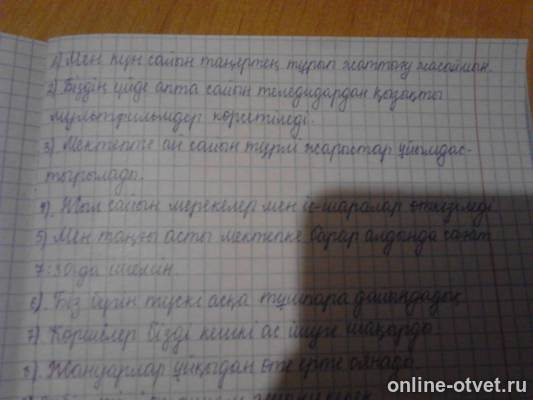 1) Мен күн сайын таңертең тұрып жаттығу жасаймын.
2) Біздің үйде апта сайын теледидардан қазақты
мультфильмдер көрсетіледі.
3) Мектепте ай сайын түрлі жарыстар ұйымдас-
тырылады.
4). Жыл сайын мерекелер мен іс-шаралар өткізіледі
5) Мен таңғы асты мектепке барар алдында сағат
7:30да ішемін.
6). Біз бүгін түскі асқа тұшпара дайындадық.
7) Көршілер бізді кешкі ас ішуге шақырды.
8). Жануарлар ұйқыдан өте ерте оянады.
online-otvet.ru